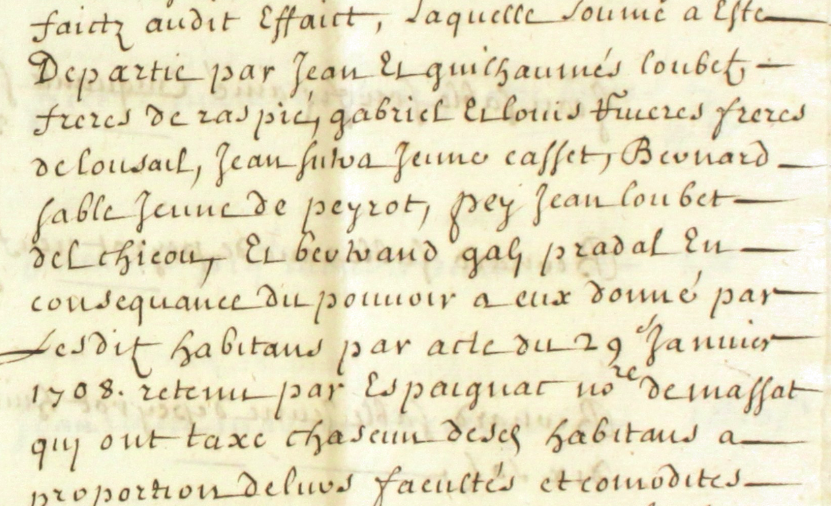 faictz audit Effaict, Laquelle somme a Este
Departie par Jean Et guilhaumés loubet,
freres de raspié, gabriel Et louis freres
de lousail, Jean Jeune casset, Bernard
sable Jeune de peyrot, pey Jean loubet
del chicou, Et bertrand galy pradal En
consequance du pouvoir a eux donné par
Lesditz habitans par acte du 29e Janvier
1708. retenu par Espaignac nore de massat
quy ont taxe chascun desdz habitans a
proportion de lurs facultés et comodites